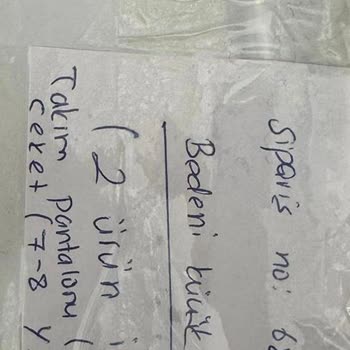 Sipariş no: 6
Bedeni küçük
( 2 ürün
Takım pantalonu (
ceket (7-8 y